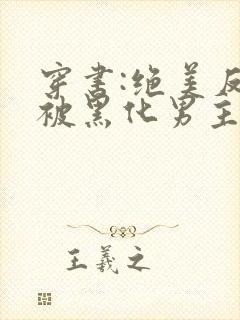 穿书:绝美反
被黑化男主
王羲之